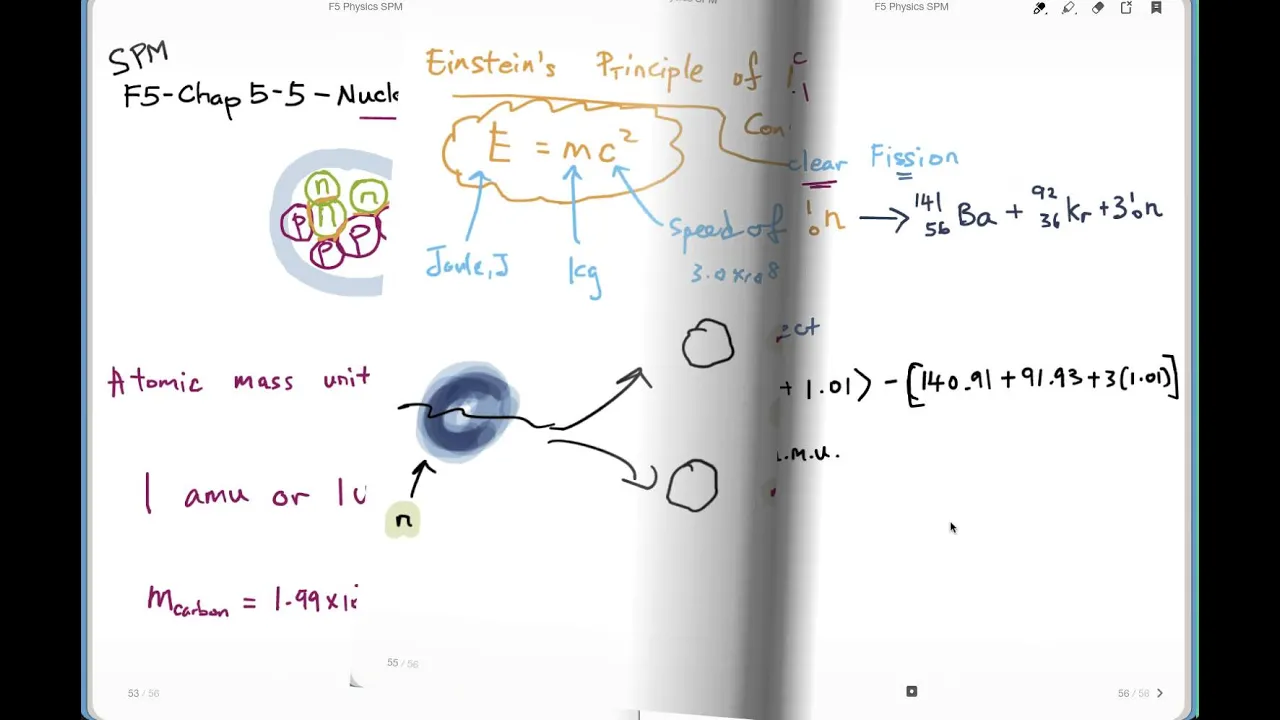 F5 Physics SPM
F5 Physics SPM
SPM
F5-Chap 5-5-
n n n
p p p
Atomic mass unit
1 amu or 1u
m carbon = 1.99×1
53 / 56
Einstein's Principle of
E = mc²
Joule, J
kg
Speed of
3.0×10 8
n
55 / 56
Fission
¹₀n → ¹⁴¹₅₆Ba + ⁹²₃₆Kr + 3¹₀n
+ 1.01) - [140.91 + 91.93 + 3(1.01)]
.m.u.
56 / 56